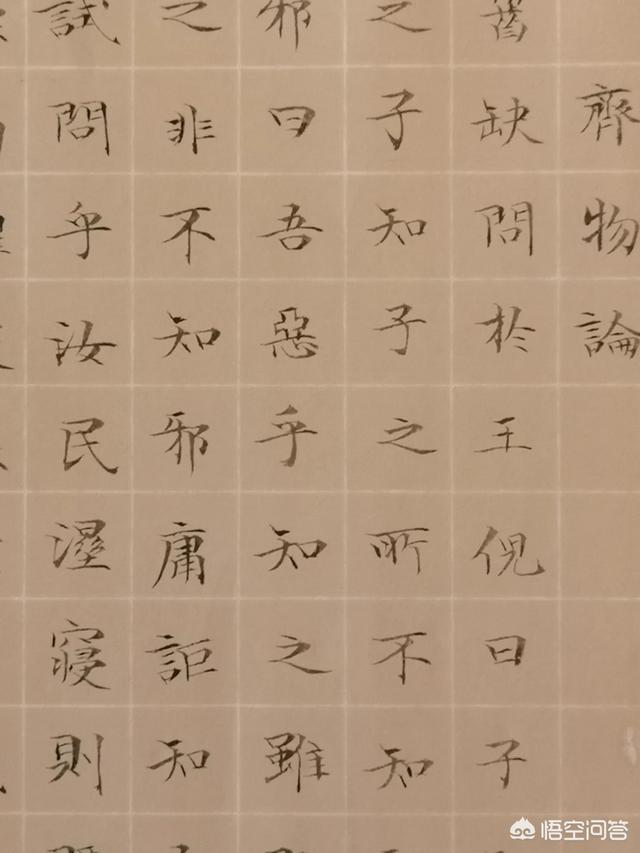 齊物論
缺問於王倪曰子
之子知子之所不知
邪曰吾惡乎知之雖
之非不知邪庸詎知
試問乎汝民濕寢則
悟空问答